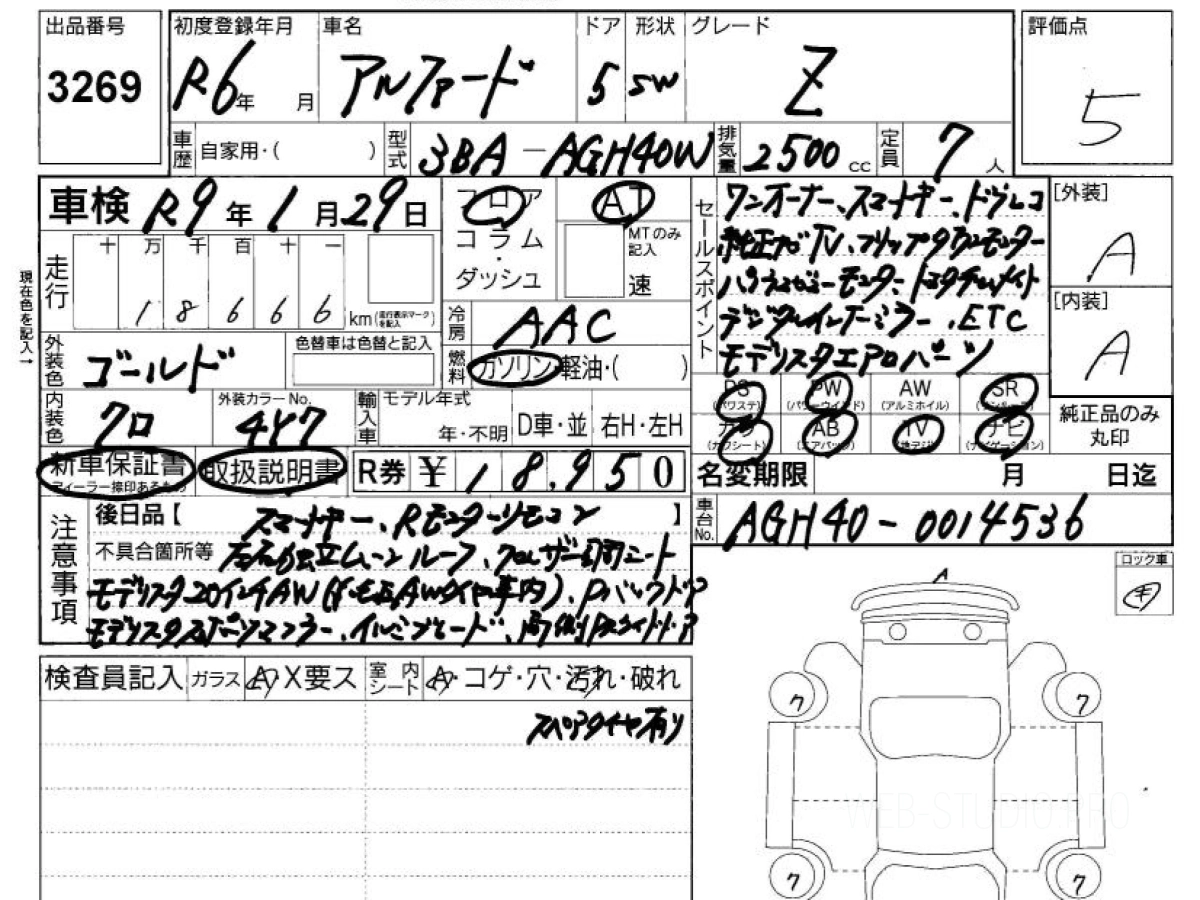 出品番号 3269
初度登録年月 R6年 月
車名 アルファード
ドア 5
形状 SW
グレード Z
評価点 5
車歴 自家用・( )
型式 3BA-AGH40W
排気量 2500 cc
定員 7人
車検 R9年 1月29日
フロア コラム・ダッシュ
AT
MTのみ記入
速
セールスポイント
ワンオーナー、スマートキー、ドラレコ
純正ナビTV、フリップダウンモニター
パノラミックビューモニター、トヨタチームメイト
デジタルインナーミラー、ETC
モデリスタエアロパーツ
[外装] A
[内装] A
現在色を記入→
走行 十 万 千 百 十 一
1 8 6 6 6 km (走行表示マークを記入)
冷房 AAC
外装色 ゴールド
色替車は色替と記入
燃料 ガソリン・軽油・( )
内装色 クロ
外装カラーNo. 4Y7
輸入車 モデル年式 年・不明
D車・並 右H・左H
PS (パワステ) PW (パワーウインド) AW (アルミホイル) SR
カワ (カワシート) AB (エアバック) TV (地デジ) ナビ (ナビゲーション)
純正品のみ丸印
新車保証書 ディーラー捺印あるもの
取扱説明書
R券 ¥18,950
名変期限 月 日迄
注意事項
後日品【 スマートキー、Rモニターリモコン 】
不具合箇所等 左右独立ムーンルーフ、
モデリスタ20インチAW
モデリスタスポーツマフラー、イルミブレード、
車台No. AGH40-0014536
ロック車 キ
検査員記入
ガラス A X要ス
室内シート A・コゲ・穴・汚れ・破れ
スペアタイヤ有り
A
ワ ワ
ワ ワ
WEB-STUDIO.PRO